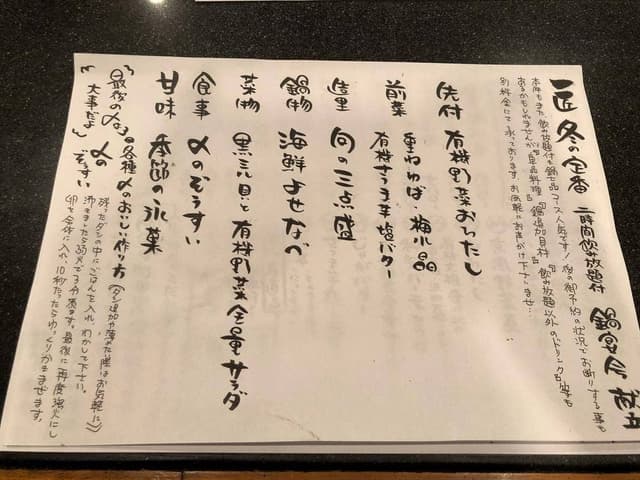 匠 冬の定番 二時間飲み放題付 鍋宴会 献立
本年もまた飲み放題付鍋宴会コース人気です！ 他の御予約の状況でお断りする事も
あるかもしれませんが『単品料理』『鍋追加具材』『飲み放題以外のドリンク』等も
別料金にて承っております お気軽にお声がけ下さいませ…
先付 有機野菜おひたし
前菜 重ねゆば・梅水晶
有機さつま芋塩バター
造里 旬の三点盛
鍋物 海鮮よせなべ
菜物 黒ミル貝と有機野菜金星サラダ
食事 〆のぞうすい
甘味 季節の氷菓
『最後の〆なる』 各種〆のおいしい作り方 (ダシ追加や薄めた際はお気軽に)
大事だよ 〆の ぞうすい
残ったダシの中にごはんを入れ、わかして下さい。
沸きましたら弱火で3分煮ます。最後に再度強火にし
卵を全体に入れ、10秒たったらゆっくりかきまぜます。